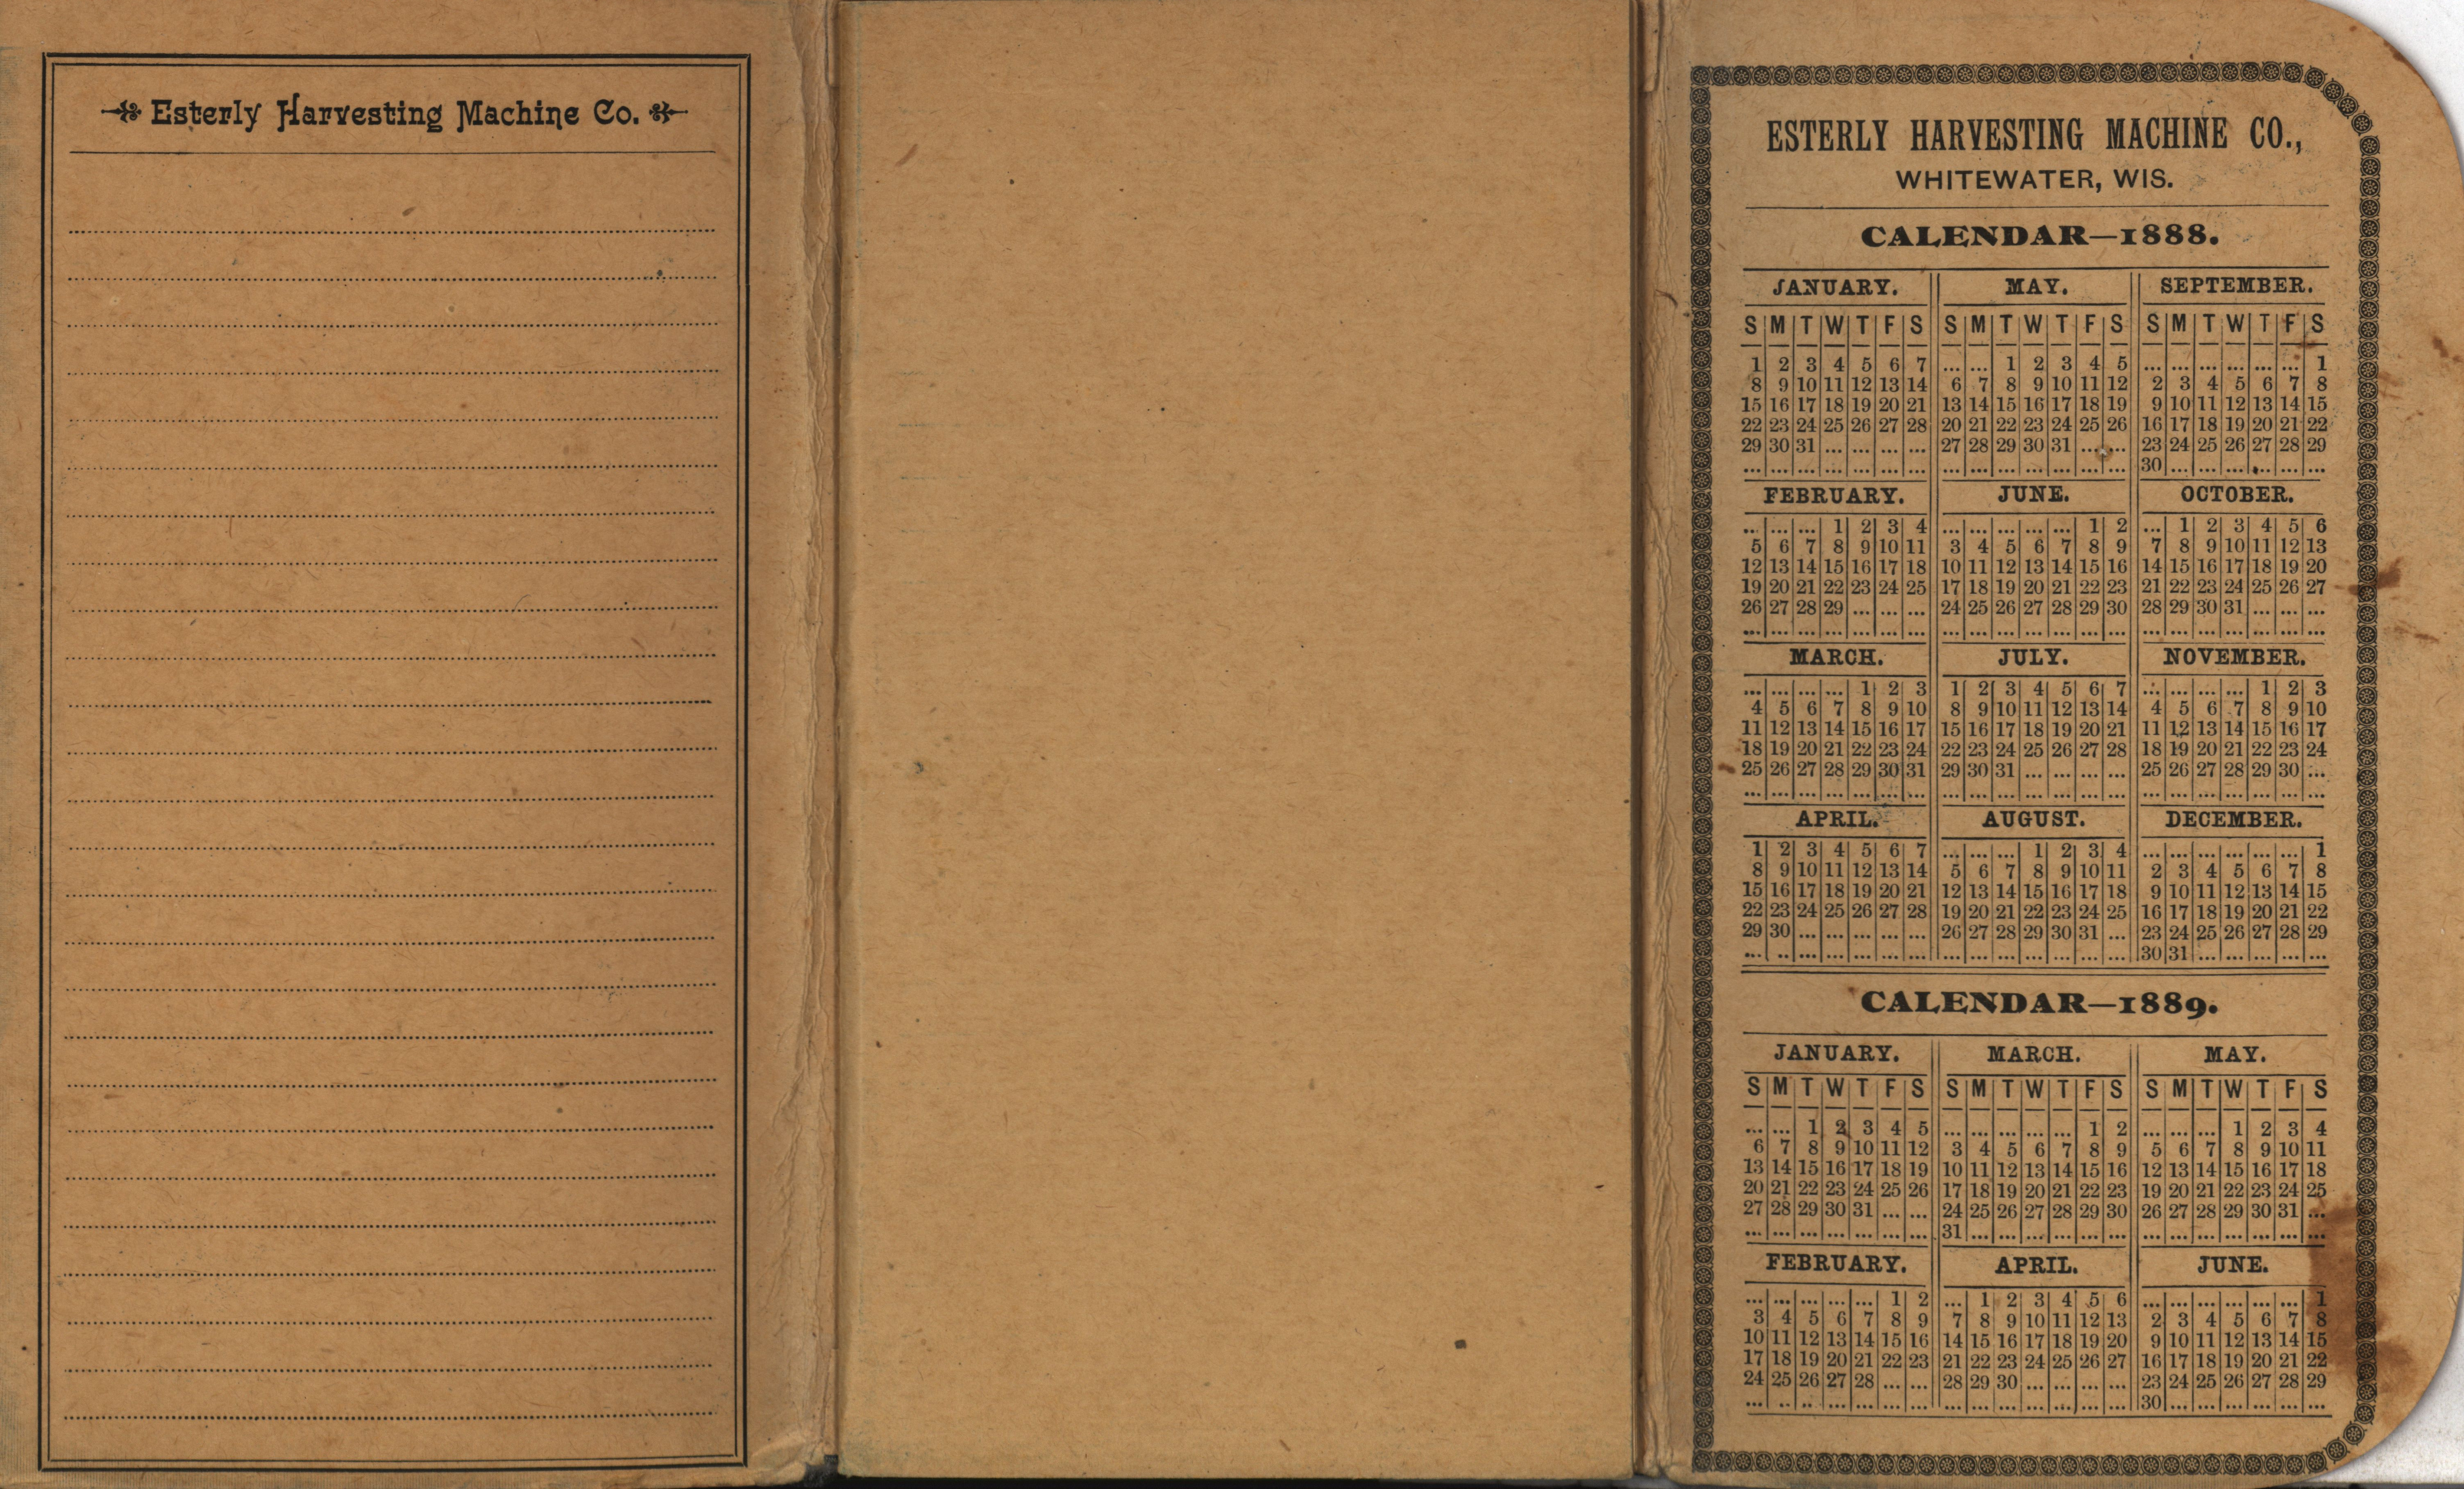 Esterly Harvesting Machine Co.
ESTERLY HARVESTING MACHINE CO.,
WHITEWATER, WIS.
CALENDAR—1888.
JANUARY. MAY. SEPTEMBER.
S M T W T F S S M T W T F S S M T W T F S
1 2 3 4 5 6 7 ... ... 1 2 3 4 5 ... ... ... ... ... ... 1
8 9 10 11 12 13 14 6 7 8 9 10 11 12 2 3 4 5 6 7 8
15 16 17 18 19 20 21 13 14 15 16 17 18 19 9 10 11 12 13 14 15
22 23 24 25 26 27 28 20 21 22 23 24 25 26 16 17 18 19 20 21 22
29 30 31 ... ... ... ... 27 28 29 30 31 ... ... 23 24 25 26 27 28 29
... ... ... ... ... ... ... ... ... ... ... ... ... ... 30 ... ... ... ... ... ...
FEBRUARY. JUNE. OCTOBER.
... ... ... 1 2 3 4 ... ... ... ... ... 1 2 ... 1 2 3 4 5 6
5 6 7 8 9 10 11 3 4 5 6 7 8 9 7 8 9 10 11 12 13
12 13 14 15 16 17 18 10 11 12 13 14 15 16 14 15 16 17 18 19 20
19 20 21 22 23 24 25 17 18 19 20 21 22 23 21 22 23 24 25 26 27
26 27 28 29 ... ... ... 24 25 26 27 28 29 30 28 29 30 31 ... ... ...
... ... ... ... ... ... ... ... ... ... ... ... ... ... ... ... ... ... ... ... ...
MARCH. JULY. NOVEMBER.
... ... ... ... 1 2 3 1 2 3 4 5 6 7 ... ... ... ... 1 2 3
4 5 6 7 8 9 10 8 9 10 11 12 13 14 4 5 6 7 8 9 10
11 12 13 14 15 16 17 15 16 17 18 19 20 21 11 12 13 14 15 16 17
18 19 20 21 22 23 24 22 23 24 25 26 27 28 18 19 20 21 22 23 24
25 26 27 28 29 30 31 29 30 31 ... ... ... ... 25 26 27 28 29 30 ...
... ... ... ... ... ... ... ... ... ... ... ... ... ... ... ... ... ... ... ... ...
APRIL. AUGUST. DECEMBER.
1 2 3 4 5 6 7 ... ... ... 1 2 3 4 ... ... ... ... ... ... 1
8 9 10 11 12 13 14 5 6 7 8 9 10 11 2 3 4 5 6 7 8
15 16 17 18 19 20 21 12 13 14 15 16 17 18 9 10 11 12 13 14 15
22 23 24 25 26 27 28 19 20 21 22 23 24 25 16 17 18 19 20 21 22
29 30 ... ... ... ... ... 26 27 28 29 30 31 ... 23 24 25 26 27 28 29
... .. ... ... ... ... ... ... ... ... ... ... ... ... 30 31 ... ... ... ... ...
CALENDAR—1889.
JANUARY. MARCH. MAY.
S M T W T F S S M T W T F S S M T W T F S
... ... 1 2 3 4 5 ... ... ... ... ... 1 2 ... ... ... 1 2 3 4
6 7 8 9 10 11 12 3 4 5 6 7 8 9 5 6 7 8 9 10 11
13 14 15 16 17 18 19 10 11 12 13 14 15 16 12 13 14 15 16 17 18
20 21 22 23 24 25 26 17 18 19 20 21 22 23 19 20 21 22 23 24 25
27 28 29 30 31 ... ... 24 25 26 27 28 29 30 26 27 28 29 30 31 ...
... ... ... ... ... ... ... 31 ... ... ... ... ... ... ... ... ... ... ... ... ...
FEBRUARY. APRIL. JUNE.
... ... ... ... ... 1 2 ... 1 2 3 4 5 6 ... ... ... ... ... ... 1
3 4 5 6 7 8 9 7 8 9 10 11 12 13 2 3 4 5 6 7 8
10 11 12 13 14 15 16 14 15 16 17 18 19 20 9 10 11 12 13 14 15
17 18 19 20 21 22 23 21 22 23 24 25 26 27 16 17 18 19 20 21 22
24 25 26 27 28 ... ... 28 29 30 ... ... ... ... 23 24 25 26 27 28 29
... .. .. ... ... ... ... ... ... ... ... ... ... ... 30 ... ... ... ... ... ...